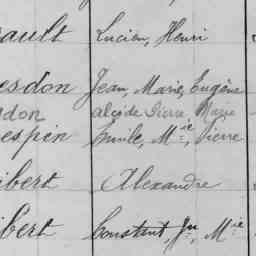 ault Lucien, Henri
esdon Jean, Marie, Eugène
don Alcide Pierre Marie
espin Emile, Mie, Pierre
ibert Alexandre
ibert Constant, Jn, Mie